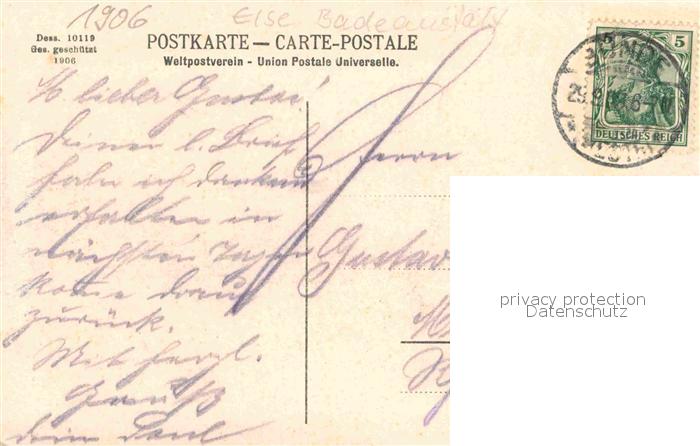 1906 Else Badeanstalt
Dess. 10119
Ges. geschützt
1906
POSTKARTE — CARTE-POSTALE
Weltpostverein - Union Postale Universelle.
5 5
DEUTSCHES REICH
BÜNDE
M. lieber Gustav!
Deinen l. Brief
habe ich dankend
erhalten in
nächsten Tagen
komme drauf
zurück.
Mit herzl.
Gruß
dein Paul
Herrn
Gustav
privacy protection
Datenschutz